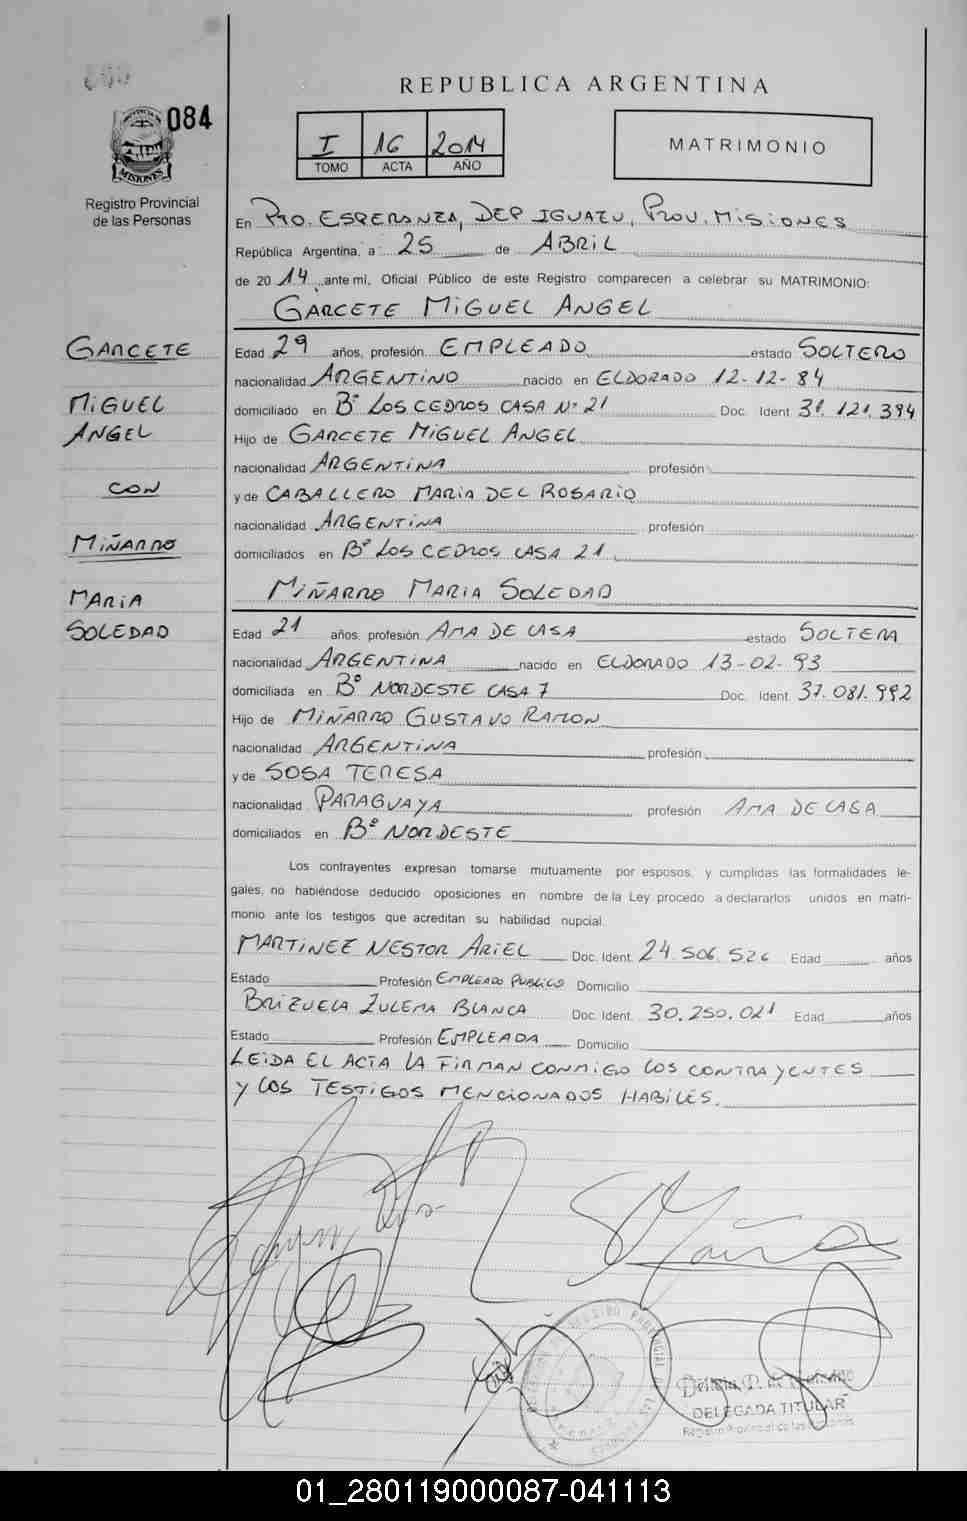 084
REPUBLICA ARGENTINA
I 16 2014
TOMO ACTA AÑO
MATRIMONIO
MISIONES
Registro Provincial
de las Personas
En Pto. ESPERANZA, DEP IGUAZU, Prov. Misiones
República Argentina, a 25 de ABRIL
de 2014, ante mi, Oficial Público de este Registro comparecen a celebrar su MATRIMONIO:
GARCETE MIGUEL ANGEL
GARCETE
MIGUEL
ANGEL
CON
MIÑARRO
MARIA
SOLEDAD
Edad 29 años, profesión EMPLEADO estado SOLTERO
nacionalidad ARGENTINO nacido en ELDORADO 12-12-84
domiciliado en Bº LOS CEDROS CASA Nº 21 Doc. Ident. 31.121.394
Hijo de GARCETE MIGUEL ANGEL
nacionalidad ARGENTINA profesión
y de CABALLERO MARIA DEL ROSARIO
nacionalidad ARGENTINA profesión
domiciliados en Bº LOS CEDROS CASA 21
MIÑARRO MARIA SOLEDAD
Edad 21 años, profesión AMA DE CASA estado SOLTERA
nacionalidad ARGENTINA nacido en ELDORADO 13-02-93
domiciliada en Bº NORDESTE CASA 7 Doc. Ident. 37.081.992
Hijo de MIÑARRO GUSTAVO RAMON
nacionalidad ARGENTINA profesión
y de SOSA TERESA
nacionalidad PARAGUAYA profesión AMA DE CASA
domiciliados en Bº NORDESTE
Los contrayentes expresan tomarse mutuamente por esposos, y cumplidas las formalidades le-
gales, no habiéndose deducido oposiciones en nombre de la Ley procedo a declararlos unidos en matri-
monio ante los testigos que acreditan su habilidad nupcial.
MARTINEZ NESTOR ARIEL Doc. Ident. 24.506.526 Edad años
Estado Profesión EMPLEADO PUBLICO Domicilio
BRIZUELA ZULEMA BLANCA Doc. Ident. 30.250.021 Edad años
Estado Profesión EMPLEADA Domicilio
LEIDA EL ACTA LA FIRMAN CONMIGO LOS CONTRAYENTES
Y LOS TESTIGOS MENCIONADOS HABILES.
DELEGADA TITULAR
Registro Provincial de las Personas
01_280119000087-041113